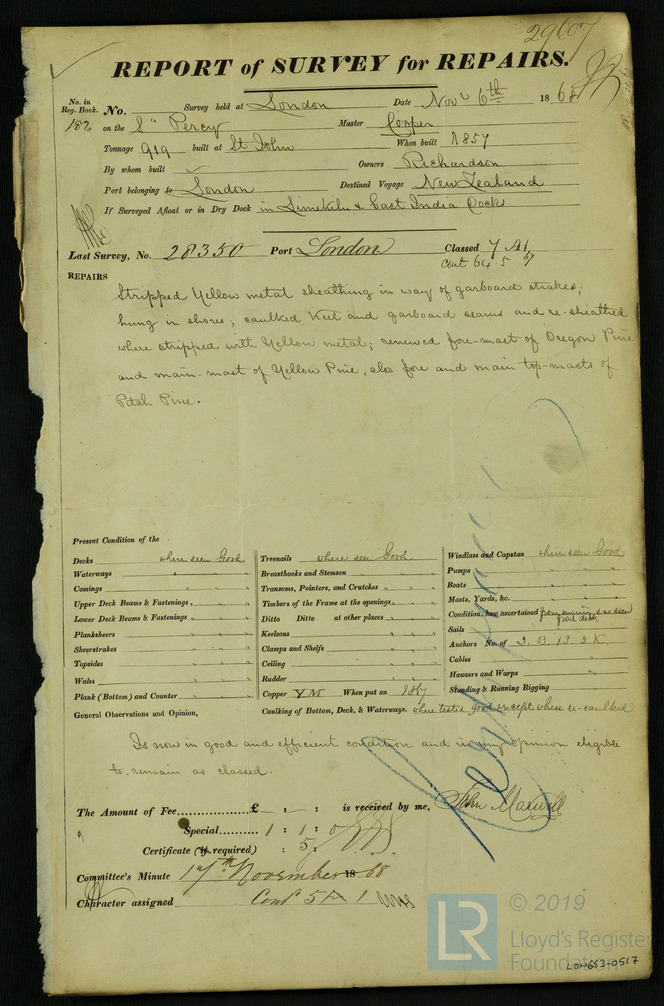 29607
REPORT of SURVEY for REPAIRS.
No. in Reg. Book. No. Survey held at London Date Novr 6th 1868
182 on the Sr Percy Master Cooper
Tonnage 919 built at St John When built 1857
By whom built Owners Richardson
Port belonging to London Destined Voyage New Zealand
If Surveyed Afloat or in Dry Dock in Limekiln & East India Docks
Last Survey, No. 28350 Port London Classed 7 A1
Cont 64 5 7
REPAIRS
Stripped Yellow metal sheathing in way of garboard strakes;
hung in shores; caulked Keel and garboard seams and re-sheathed
where stripped with Yellow metal; renewed fore-mast of Oregon Pine
and main-mast of Yellow Pine, also fore and main top-masts of
Pitch Pine.
Present Condition of the
Decks when seen Good Treenails where seen Good Windlass and Capstan when seen Good
Waterways " " Breasthooks and Stemson " " Pumps " "
Comings " " Transoms, Pointers, and Crutches " " Boats " "
Upper Deck Beams & Fastenings " " Timbers of the Frame at the openings " " Masts, Yards, &c. " "
Lower Deck Beams & Fastenings " " Ditto Ditto at other places " " Condition, how ascertained from enquiry & as seen from deck
Planksheers " " Keelsons " " Sails
Sheerstrakes " " Clamps and Shelfs " " Anchors No. of 3. B. 1 S. 2 K.
Topsides " " Ceiling " " Cables
Wales " " Rudder " " Hawsers and Warps "
Plank (Bottom) and Counter " " Copper Y M When put on 1867 Standing & Running Rigging "
General Observations and Opinion, Caulking of Bottom, Deck, & Waterways. where tested good except where re-caulked
Is now in good and efficient condition and in my opinion eligible
to remain as classed.
The Amount of Fee £ — : — : is received by me, John Maxwell
Special 1 : 1 : 0
Certificate (if required) : 5 :
Committee's Minute 17th November 1868
Character assigned Contd 5 A 1
LR © 2019
Lloyd's Register
Foundation
LON653-0517